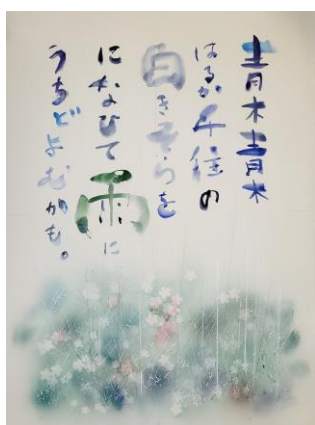 青木青木
はるか千住の
白きそらを
になひて雨に
うちどよむかも。